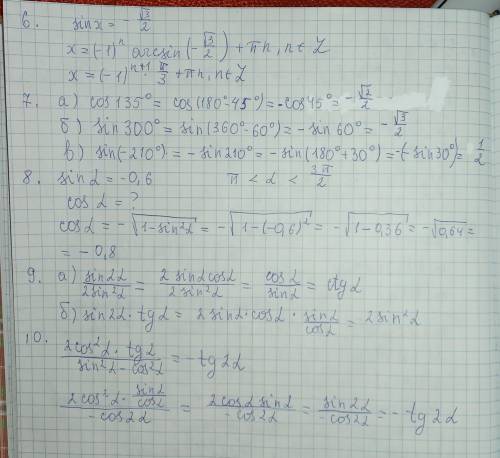 6. sin x = - √3/2
x = (-1)ⁿ arcsin(-√3/2) + πn, n∈Z
x = (-1)ⁿ⁺¹ · π/3 + πn, n∈Z
7. а) cos135° = cos(180°-45°) = -cos45° = -√2/2
б) sin300° = sin(360°-60°) = -sin60° = -√3/2
в) sin(-210°) = -sin210° = -sin(180°+30°) = -(-sin30°) = 1/2
8. sin α = -0,6 π < α < 3π/2
cos α = ?
cos α = -√(1-sin²α) = -√(1-(-0,6)²) = -√(1-0,36) = -√0,64 =
= -0,8
9. а) sin2α/2sin²α = 2sinα cosα/2sin²α = cosα/sinα = ctg α
б) sin2α · tgα = 2sinα · cosα · sinα/cosα = 2sin²α
10. 2cos²α · tgα/sin²α - cos²α = -tg2α
2cos²α · sinα/cosα/-cos2α = 2cosα sinα/-cos2α = sin2α/-cos2α = -tg2α